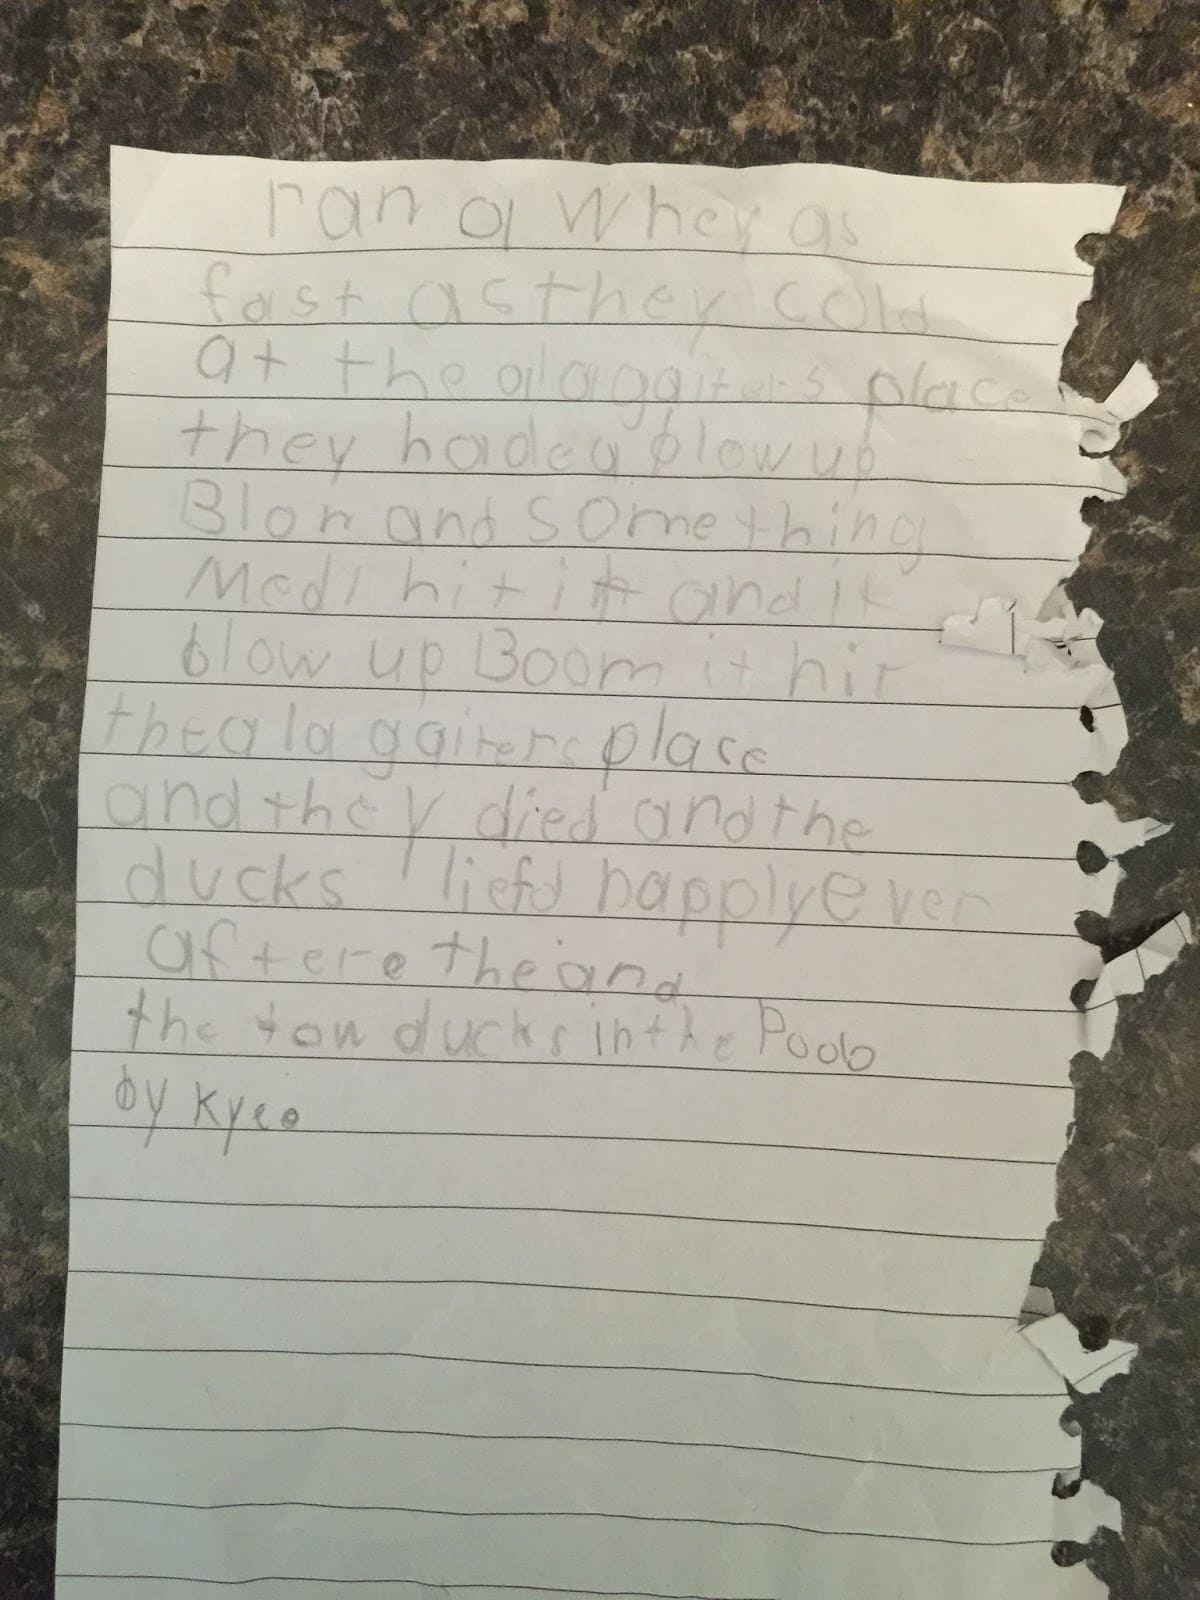 ran a whey as
fast as they cold
at the alaggaiters place
they hadea blow up
Blon and something
Medl hit it and it
blow up Boom it hit
the alaggaiters place
and they died and the
ducks liefd happlyever
aftere the and
the tow ducks in the Poob
by kyeo